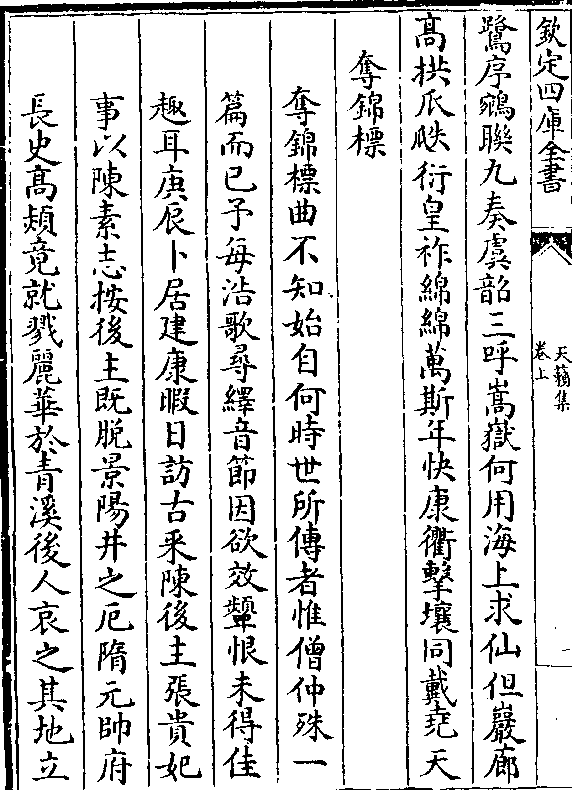 欽定四庫全書
天籟集
卷上
鷺序鵷聨九奏虞韶三呼嵩嶽何用海上求仙但巖廊
髙拱瓜瓞衍皇祚綿綿萬斯年快康衢擊壤同戴堯天
奪錦標
奪錦標曲不知始自何時世所傳者惟僧仲殊一
篇而已予每浩歌尋繹音節因欲效顰恨未得佳
趣耳庚辰卜居建康暇日訪古采陳後主張貴妃
事以陳素志按後主既脱景陽井之厄隋元帥府
長史髙熲竟就戮麗華於青溪後人哀之其地立